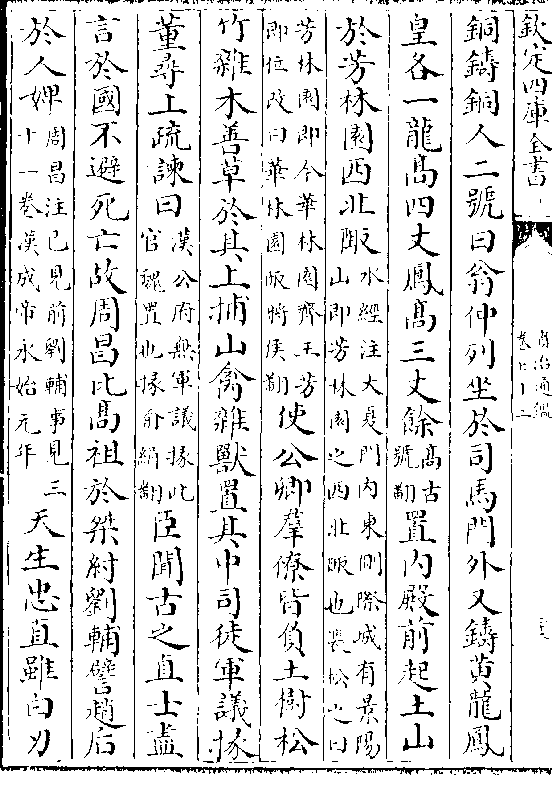 欽定四庫全書 資治通鑑 卷七十三
銅鑄銅人二號曰翁仲列坐於司馬門外又鑄黄龍鳳
皇各一龍髙四丈鳳髙三丈餘髙古號翻置内殿前起土山
於芳林園西北陬水經注大夏門内東側際城有景陽山即芳林園之西北陬也裴松之曰
芳林園即今華林園齊王芳即位改曰華林園陬將侯翻使公卿羣僚皆負土樹松
竹雜木善草於其上捕山禽雜獸置其中司徒軍議掾
董尋上疏諫曰漢公府無軍議掾此官魏置也掾俞絹翻臣聞古之直士盡
言於國不避死亡故周昌比髙祖於桀紂劉輔譬趙后
於人婢周昌注已見前劉輔事見三十一卷漢成帝永始元年天生忠直雖白刃